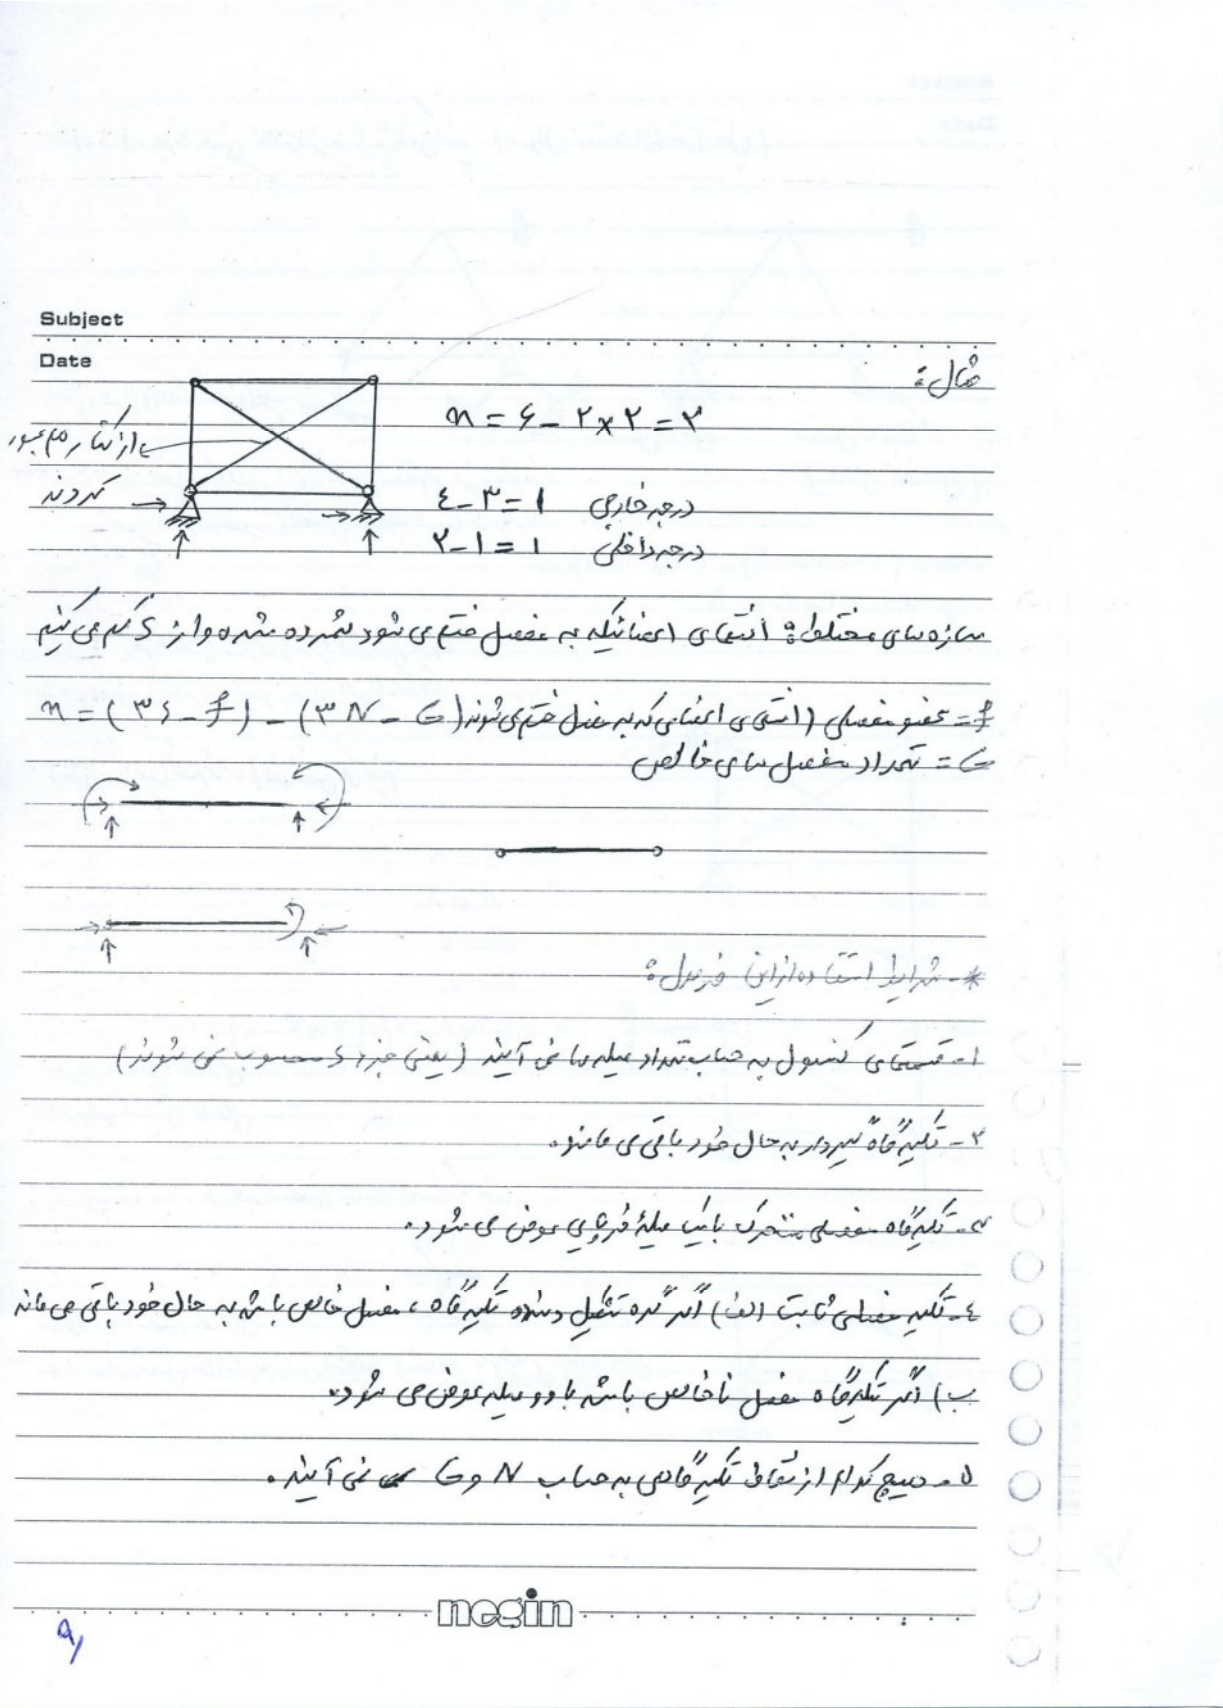 Subject
Date
مثال:
n = ۶ - ۲×۲ = ۲
از کنار هم عبور
کردند
درجه خارجی ٤-۳=۱
درجه داخلی ۲-۱=۱
سازه های مختلط: انتهای اعضائیکه به مفصل ختم می شود شمرده شده و از S کم می کنیم
f = عضو مفصلی (انتهای اعضایی که به مفصل ختم می شوند) n = (۳S - f) - (۳N - G)
G = تعداد مفصل های خالص
*- شرایط استفاده از این فرمول:
۱- قسمتهای کنسول به حساب تعداد میله ها نمی آیند (یعنی جزء S محسوب نمی شوند)
۲- تکیه گاه گیردار به حال خود باقی می ماند.
۳- تکیه گاه مفصلی متحرک با یک میلهٔ دو سر عوض می شود.
٤- تکیه مفصلی ثابت الف) اگر گره تشکیل دهنده تکیه گاه، مفصل خالص باشد به حال خود باقی می ماند
ب) اگر تکیه گاه مفصل ناخالص باشد با دو میله عوض می شود.
۵- هیچ کدام از نقاط تکیه گاهی به حساب N و G نمی آیند.
negin
۹/